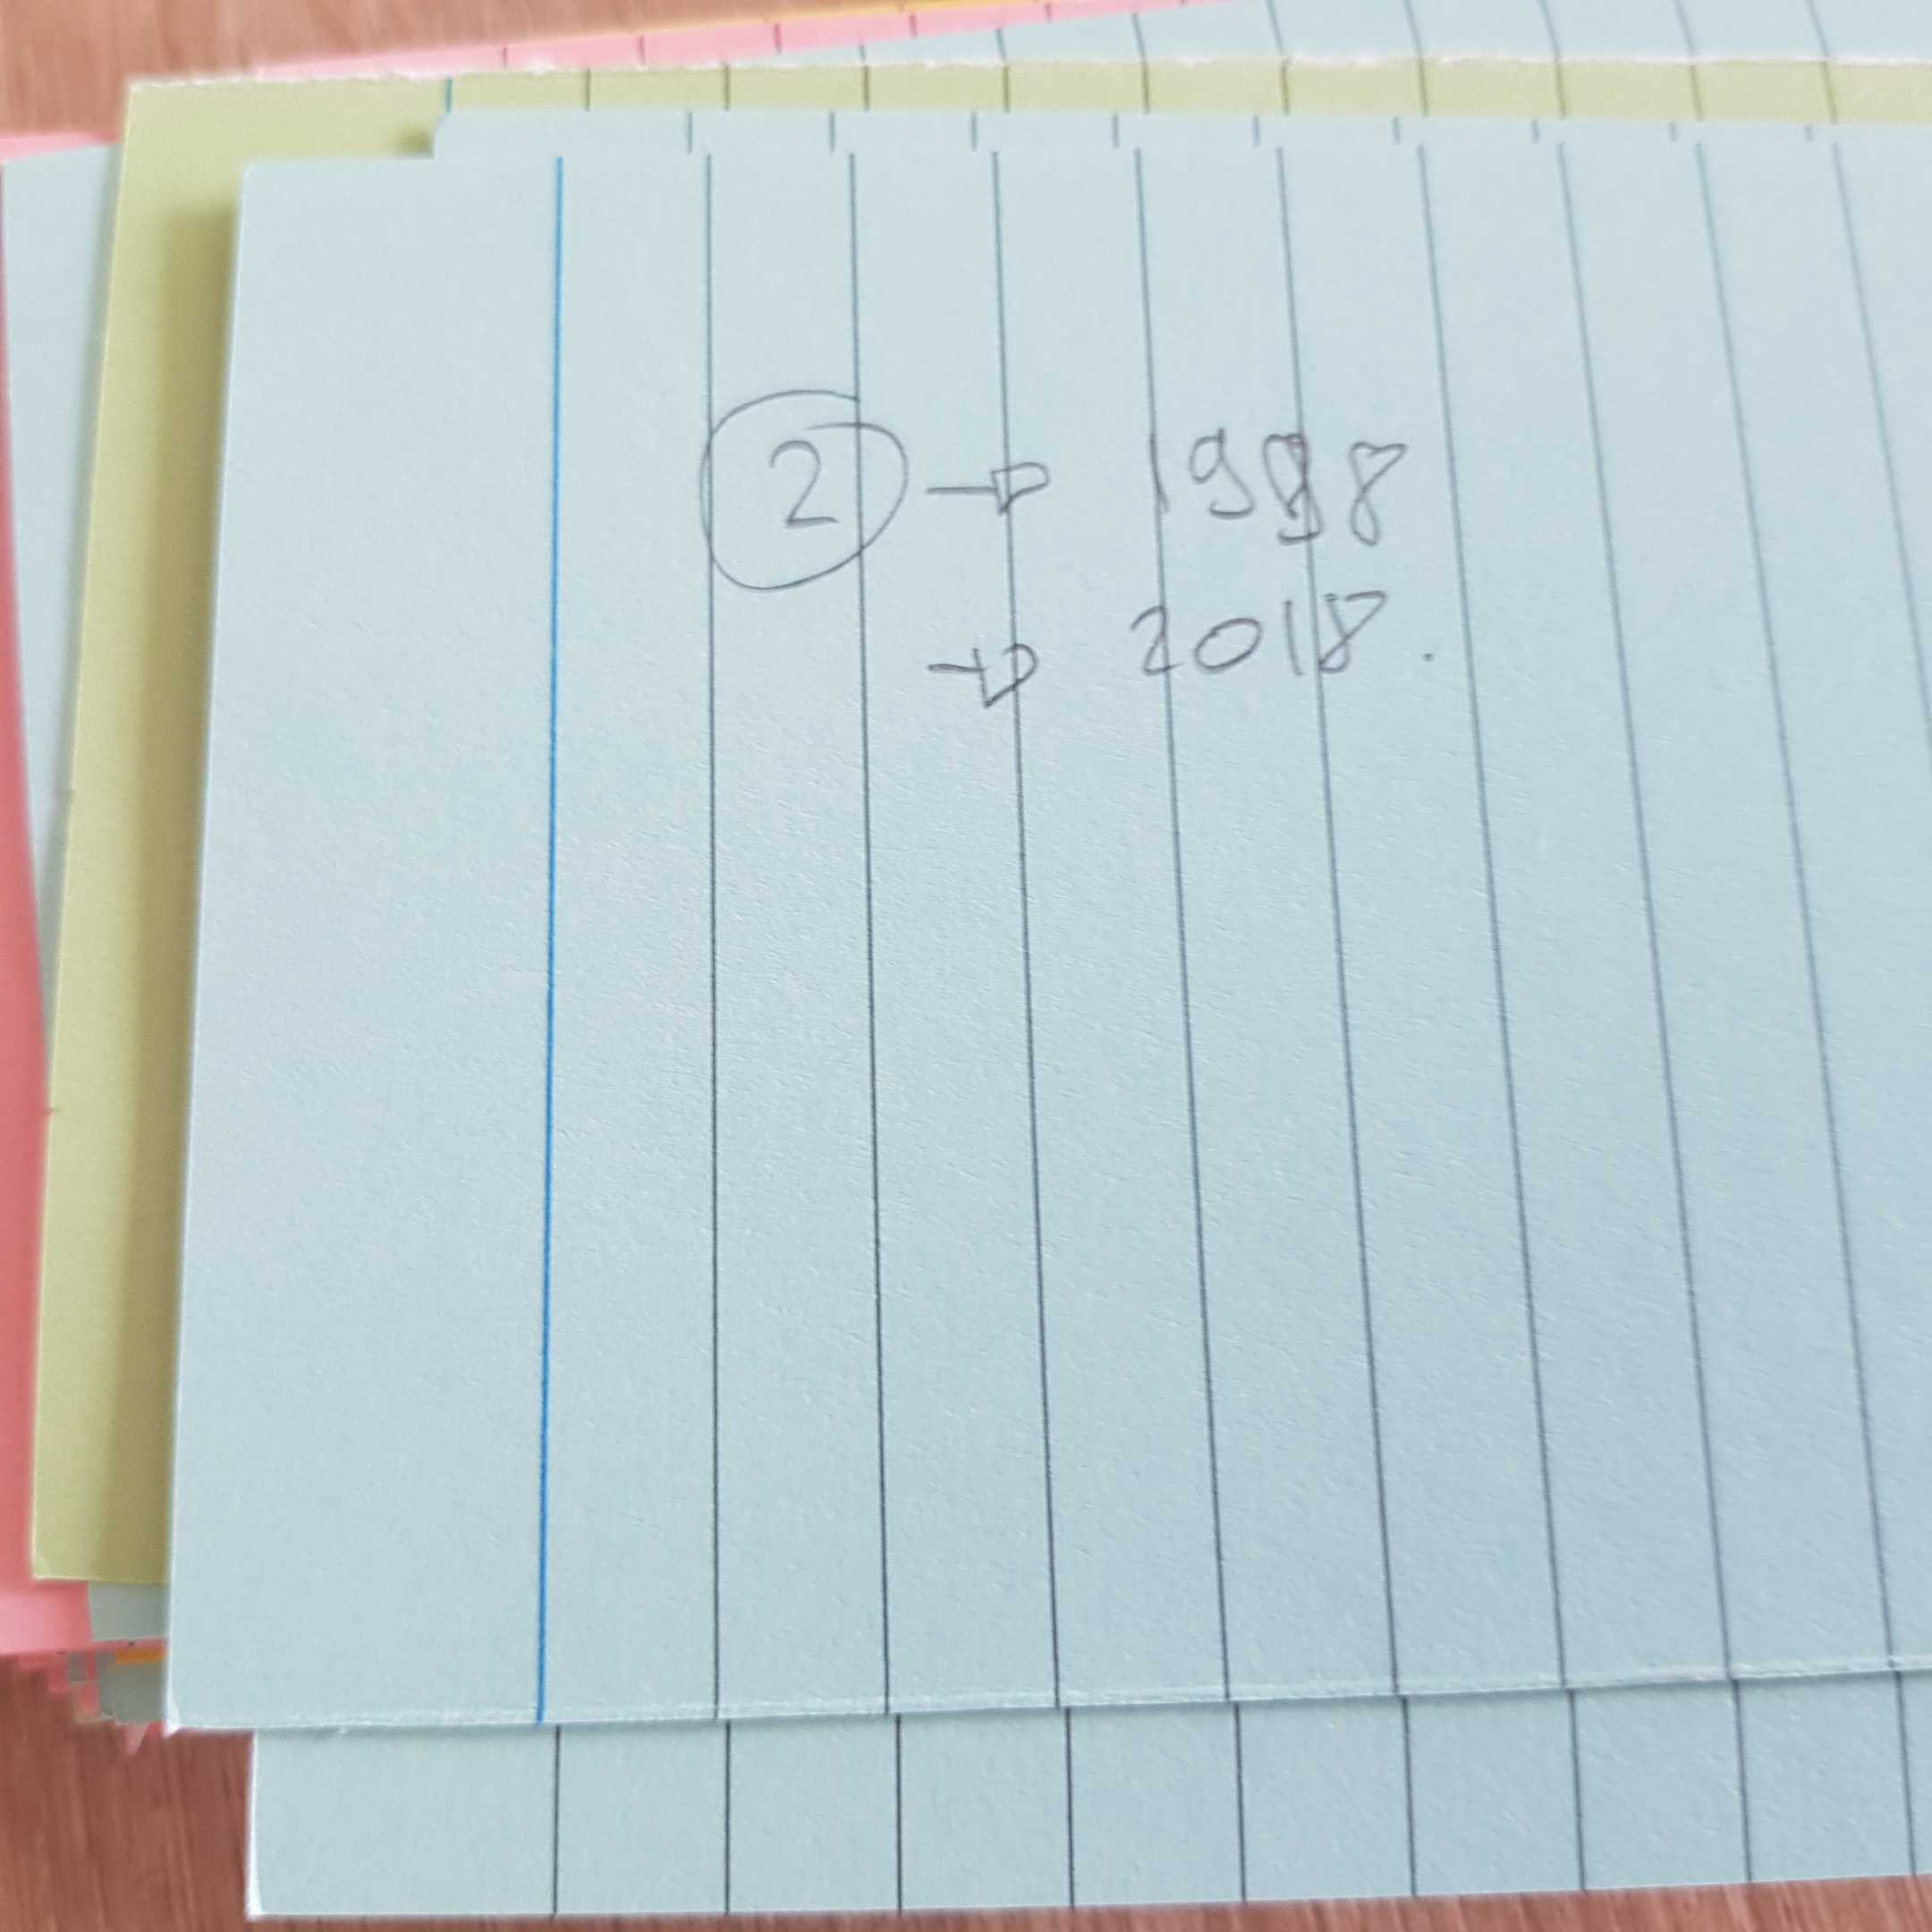 2 → 1998
→ 2018.